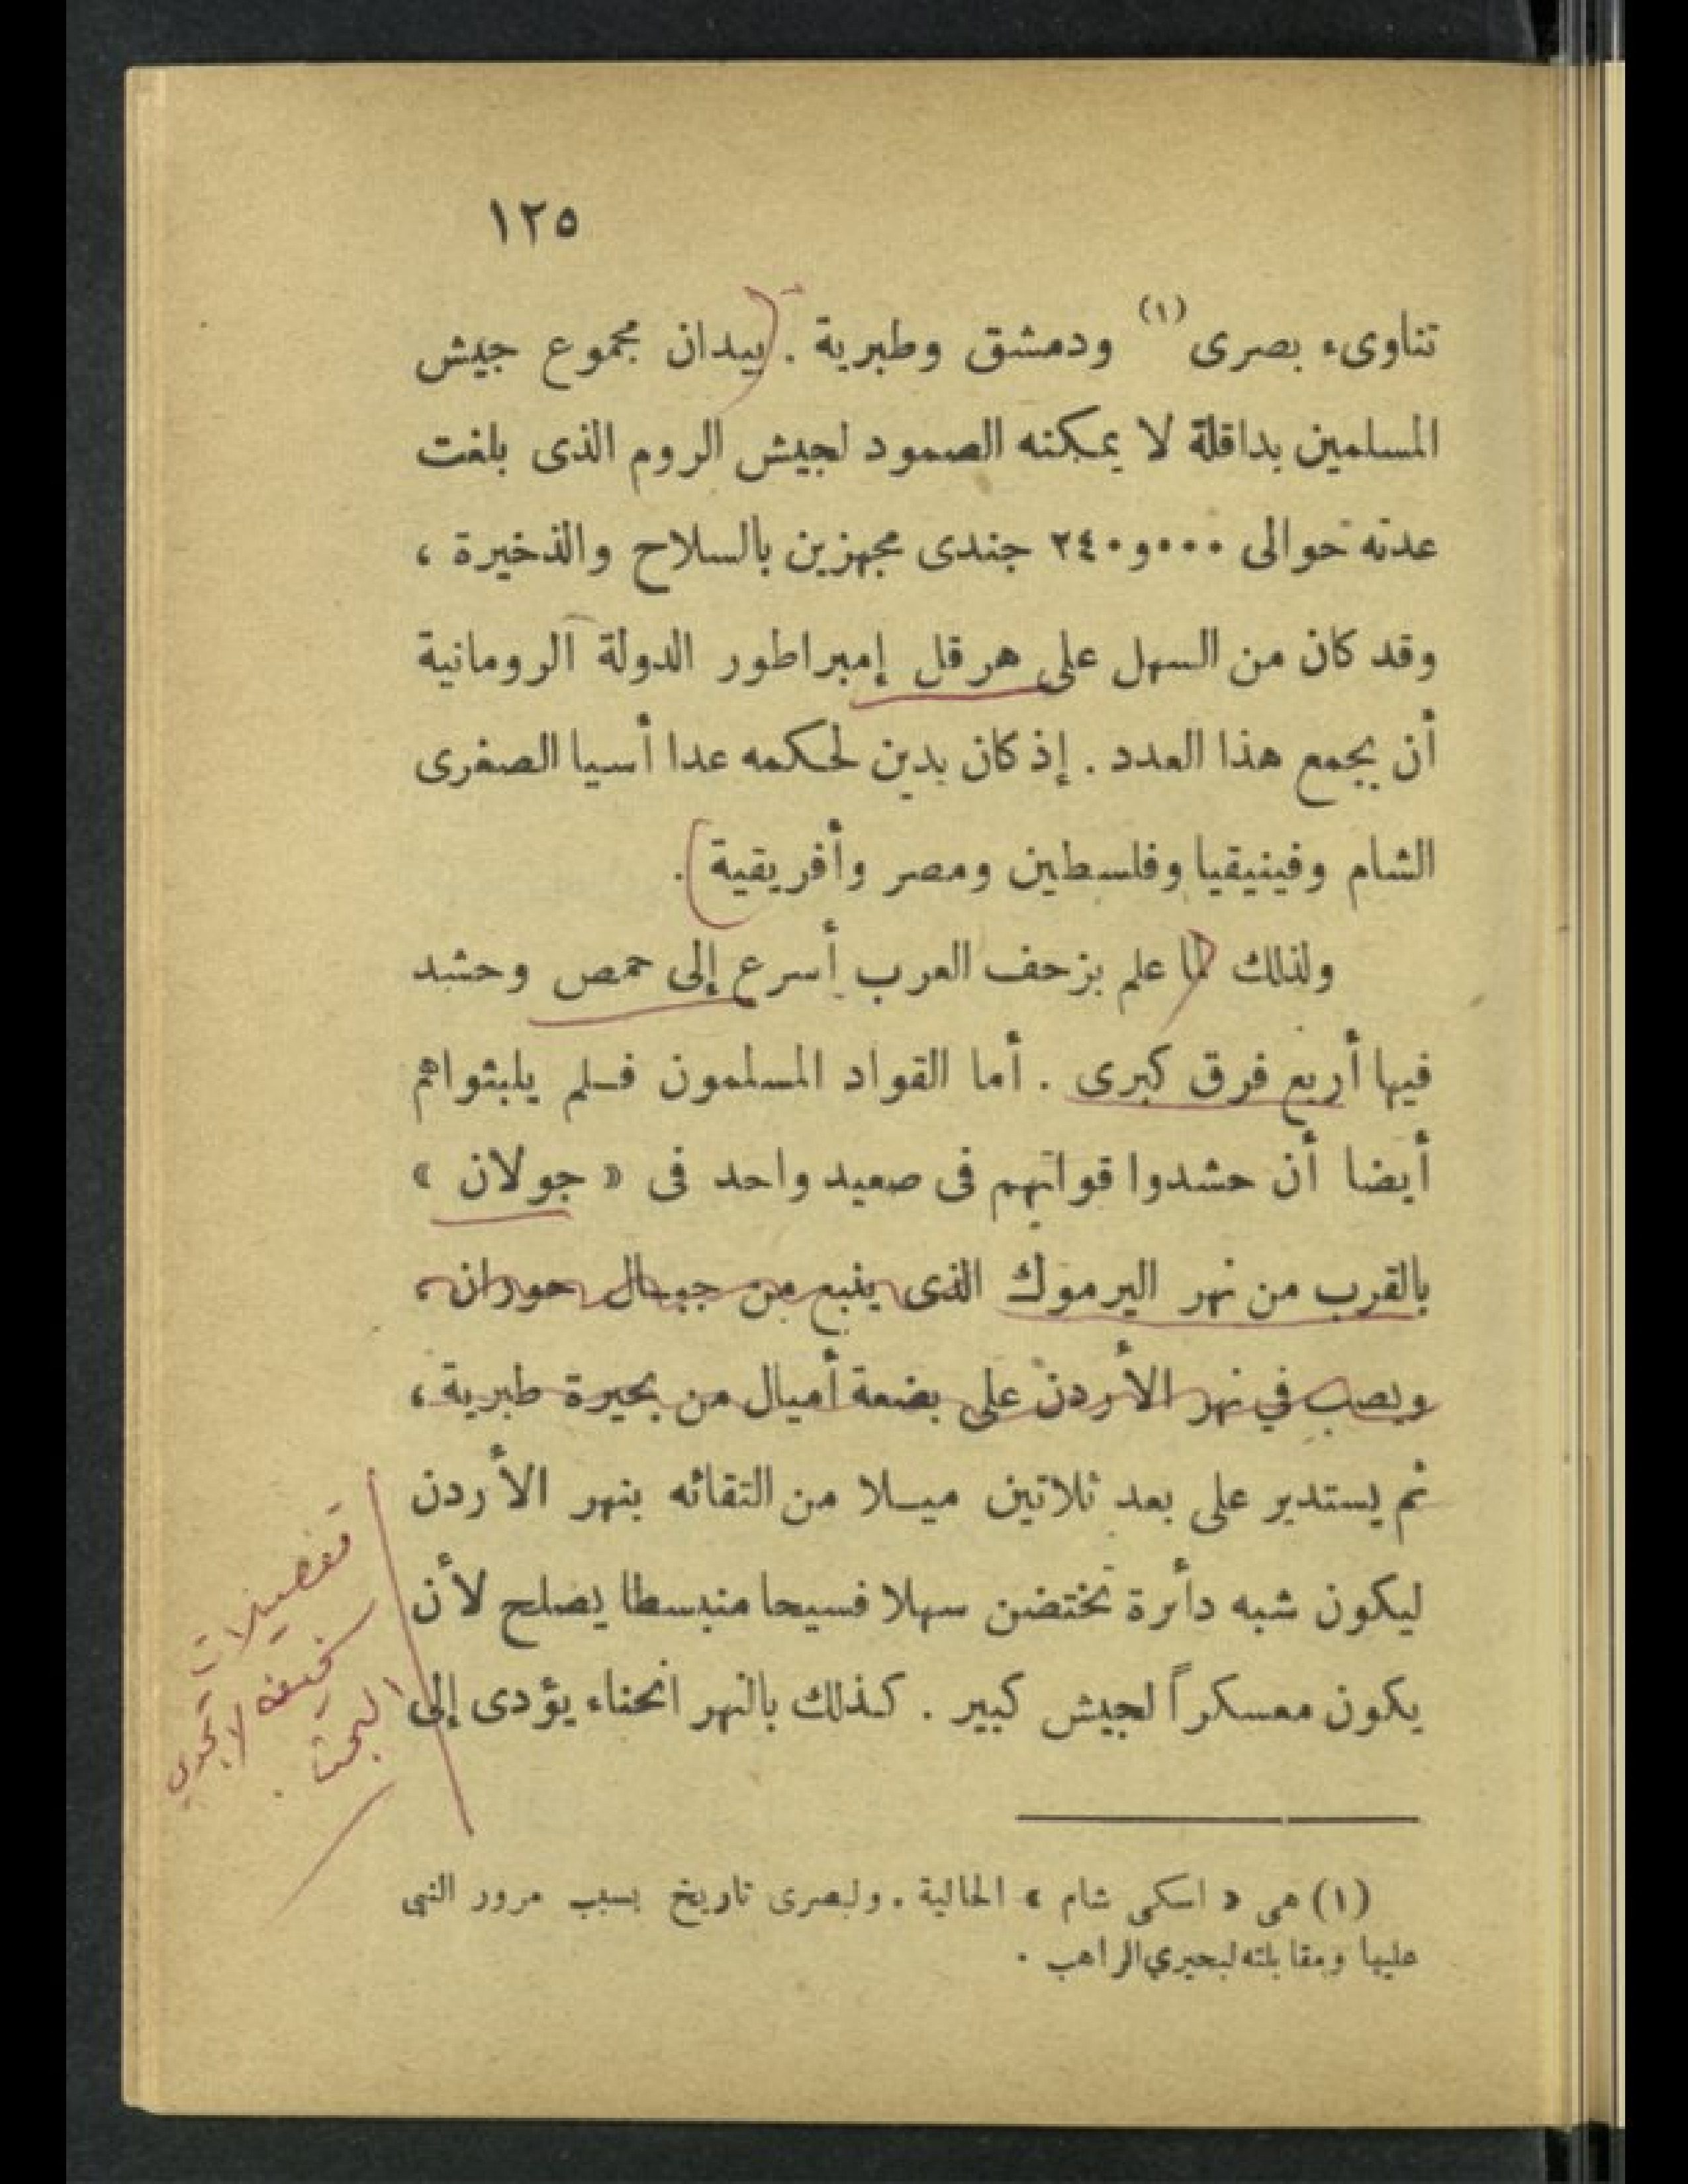 ١٢٥
تناوىء بصرى (١) ودمشق وطبرية . بيدان مجموع جيش
المسلمين بداقلة لا يمكنه الصمود لجيش الروم الذى بلغت
عدته حوالى ٢٤٠و٠٠٠ جندى مجهزين بالسلاح والذخيرة ،
وقد كان من السهل على هرقل إمبراطور الدولة الرومانية
أن يجمع هذا العدد . إذ كان يدين لحكمه عدا أسيا الصغرى
الشام وفينيقيا وفلسطين ومصر وأفريقية .
ولذلك لما علم بزحف العرب أسرع إلى حمص وحشد
فيها أربع فرق كبرى . أما القواد المسلمون فلم يلبثواهم
أيضا أن حشدوا قواتهم فى صعيد واحد فى « جولان »
بالقرب من نهر اليرموك الذى ينبع من جبال حوران ،
ويصب في نهر الأردن على بضعة أميال من بحيرة طبرية ،
ثم يستدير على بعد ثلاثين ميلا من التقائه بنهر الأردن
ليكون شبه دائرة تحتضن سهلا فسيحا منبسطا يصلح لأن
يكون معسكراً لجيش كبير . كذلك بالنهر انحناء يؤدى إلى
تفصيلات
لا تجدى
البحث
(١) هى « اسكى شام » الحالية . ولبصرى تاريخ بسبب مرور النبى
عليها ومقابلته لبحيري الراهب .